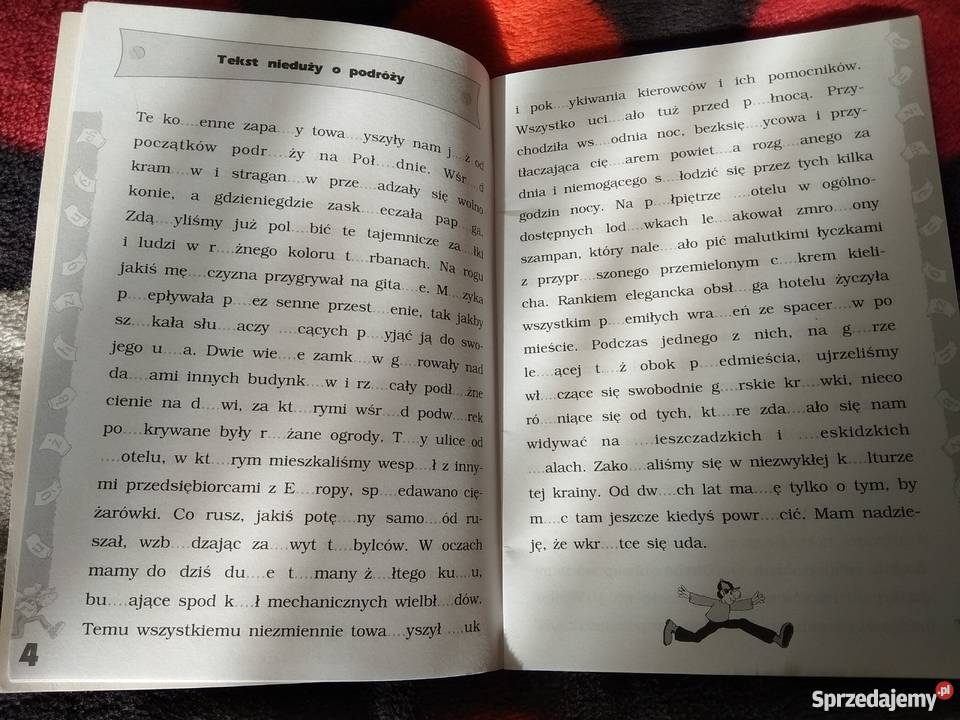 Tekst nieduży o podróży
Te ko....enne zapa....y towa....yszyły nam j....ż od
początków podr....ży na Poł....dnie. Wśr....d
kram....w i stragan....w prze....adzały się wolno
konie, a gdzieniegdzie zask....eczała pap....ga.
Zdą....yliśmy już pol....bić te tajemnicze za....łki
i ludzi w r....żnego koloru t....rbanach. Na rogu
jakiś mę....czyzna przygrywał na gita....e. M....zyka
p....epływała p....ez senne przest....enie, tak jakby
sz....kała słu....aczy ....cących p....yjąć ją do swo-
jego u....a. Dwie wie....e zamk....w g....rowały nad
da....ami innych budynk....w i rz....cały podł....żne
cienie na d....wi, za kt....rymi wśr....d podw....rek
po....krywane były r....żane ogrody. T....y ulice od
....otelu, w kt....rym mieszkaliśmy wesp....ł z inny-
mi przedsiębiorcami z E....ropy, sp....edawano cię-
żarówki. Co rusz, jakiś potę....ny samo....ód ru-
szał, wzb....dzając za....wyt t....bylców. W oczach
mamy do dziś du....e t....many ż....łtego ku....u,
bu....ające spod k....ł mechanicznych wielbł....dów.
Temu wszystkiemu niezmiennie towa....yszył ....uk
4
i pok....ykiwania kierowców i ich pomocników.
Wszystko uci....ało tuż przed p....łnocą. Przy-
chodziła ws....odnia noc, bezksię....ycowa i przy-
tłaczająca cię....arem powiet....a rozg....anego za
dnia i niemogącego s....łodzić się przez tych kilka
godzin nocy. Na p....łpiętrze ....otelu w ogólno-
dostępnych lod....wkach le....akował zmro....ony
szampan, który nale....ało pić malutkimi łyczkami
z przypr....szonego przemielonym c....krem kieli-
cha. Rankiem elegancka obsł....ga hotelu życzyła
wszystkim p....emiłych wra....eń ze spacer....w po
mieście. Podczas jednego z nich, na g....rze
le....ącej t....ż obok p....edmieścia, ujrzeliśmy
wł....czące się swobodnie g....rskie kr....wki, nieco
ró....niące się od tych, kt....re zda....ało się nam
widywać na ....ieszczadzkich i ....eskidzkich
....alach. Zako....aliśmy się w niezwykłej k....lturze
tej krainy. Od dw....ch lat ma....ę tylko o tym, by
m....c tam jeszcze kiedyś powr....cić. Mam nadzie-
ję, że wkr....tce się uda.
Sprzedajemy.pl